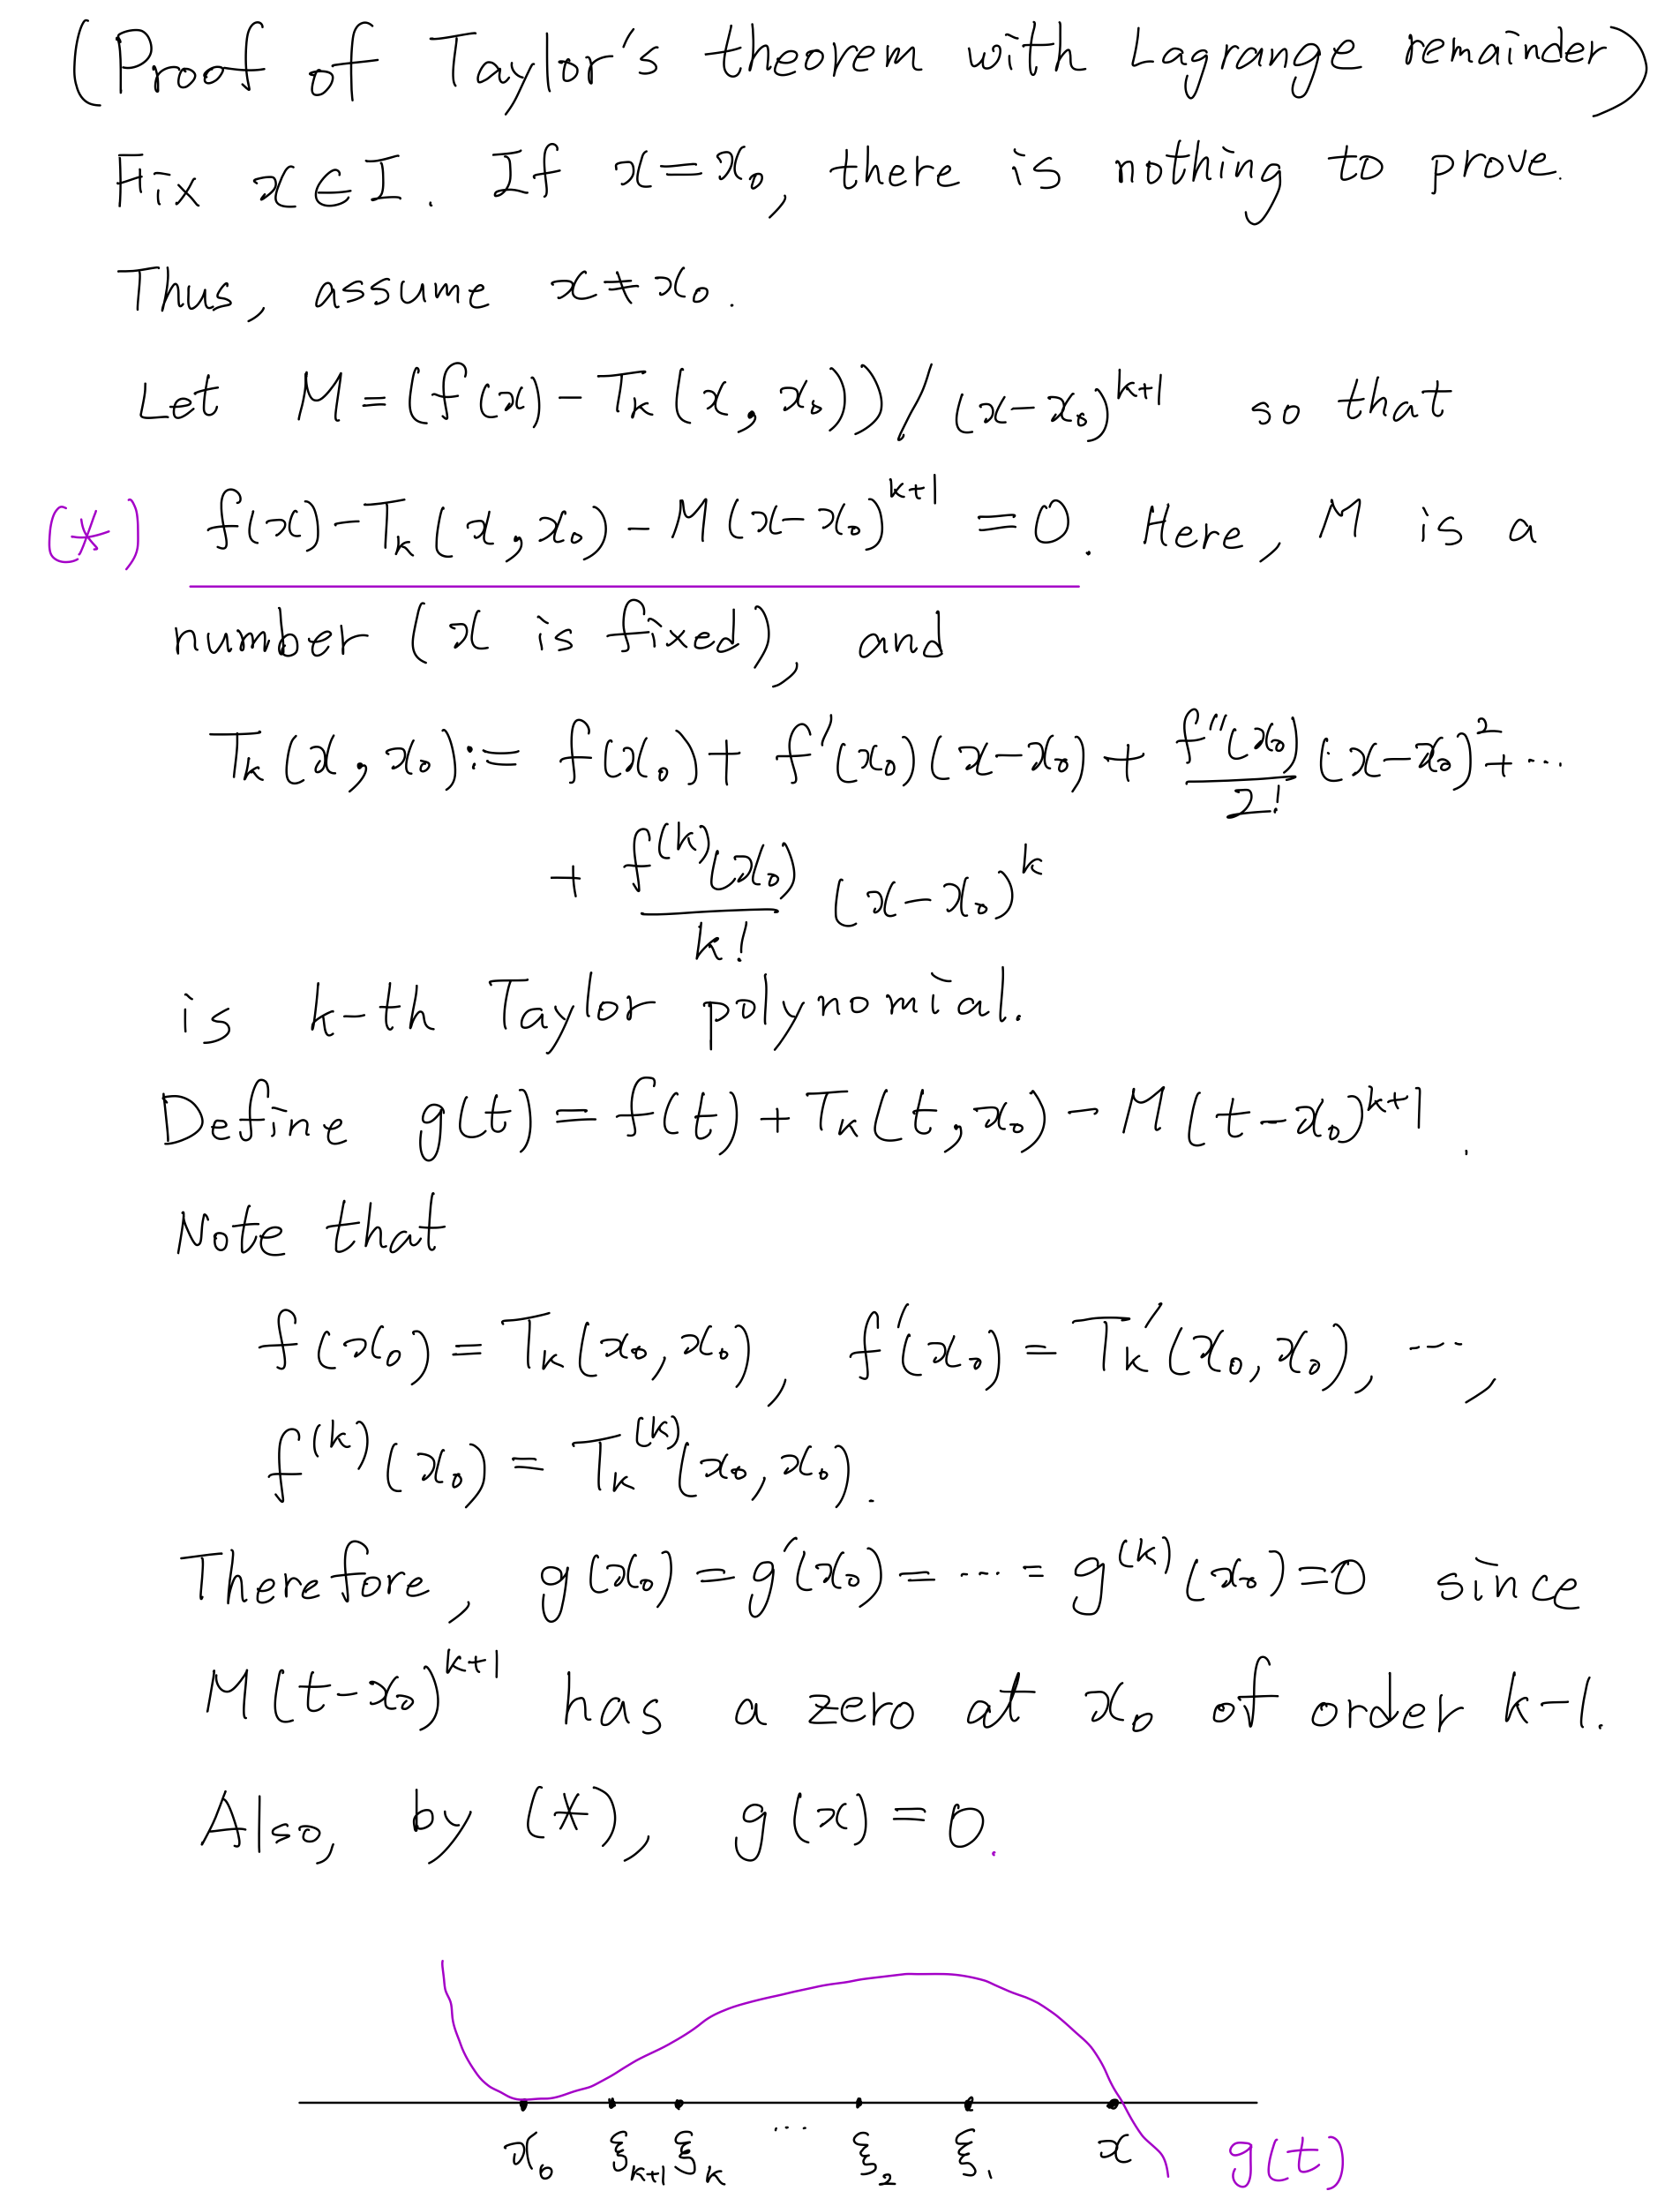 (Proof of Taylor's theorem with Lagrange remainder)
Fix x∈I. If x=x₀, there is nothing to prove.
Thus, assume x≠x₀.
Let M=(f(x)-Tₖ(x,x₀))/(x-x₀)^{k+1} so that
(*) f(x)-Tₖ(x,x₀)-M(x-x₀)^{k+1} =0. Here, M is a
number (x is fixed), and
Tₖ(x,x₀):= f(x₀)+f'(x₀)(x-x₀)+\frac{f''(x₀)}{2!}(x-x₀)²+⋯
+ \frac{f^{(k)}(x₀)}{k!} (x-x₀)^k
is k-th Taylor polynomial.
Define g(t)=f(t)+Tₖ(t,x₀)-M(t-x₀)^{k+1}.
Note that
f(x₀)=Tₖ(x₀,x₀), f'(x₀)=Tₖ'(x₀,x₀), ⋯,
f^{(k)}(x₀)=Tₖ^{(k)}(x₀,x₀).
Therefore, g(x₀)=g'(x₀)=⋯=g^{(k)}(x₀)=0 since
M(t-x₀)^{k+1} has a zero at x₀ of order k-1.
Also, by (*), g(x)=0.
x₀ ξ_{k+1} ξₖ ⋯ ξ₂ ξ₁ x g(t)